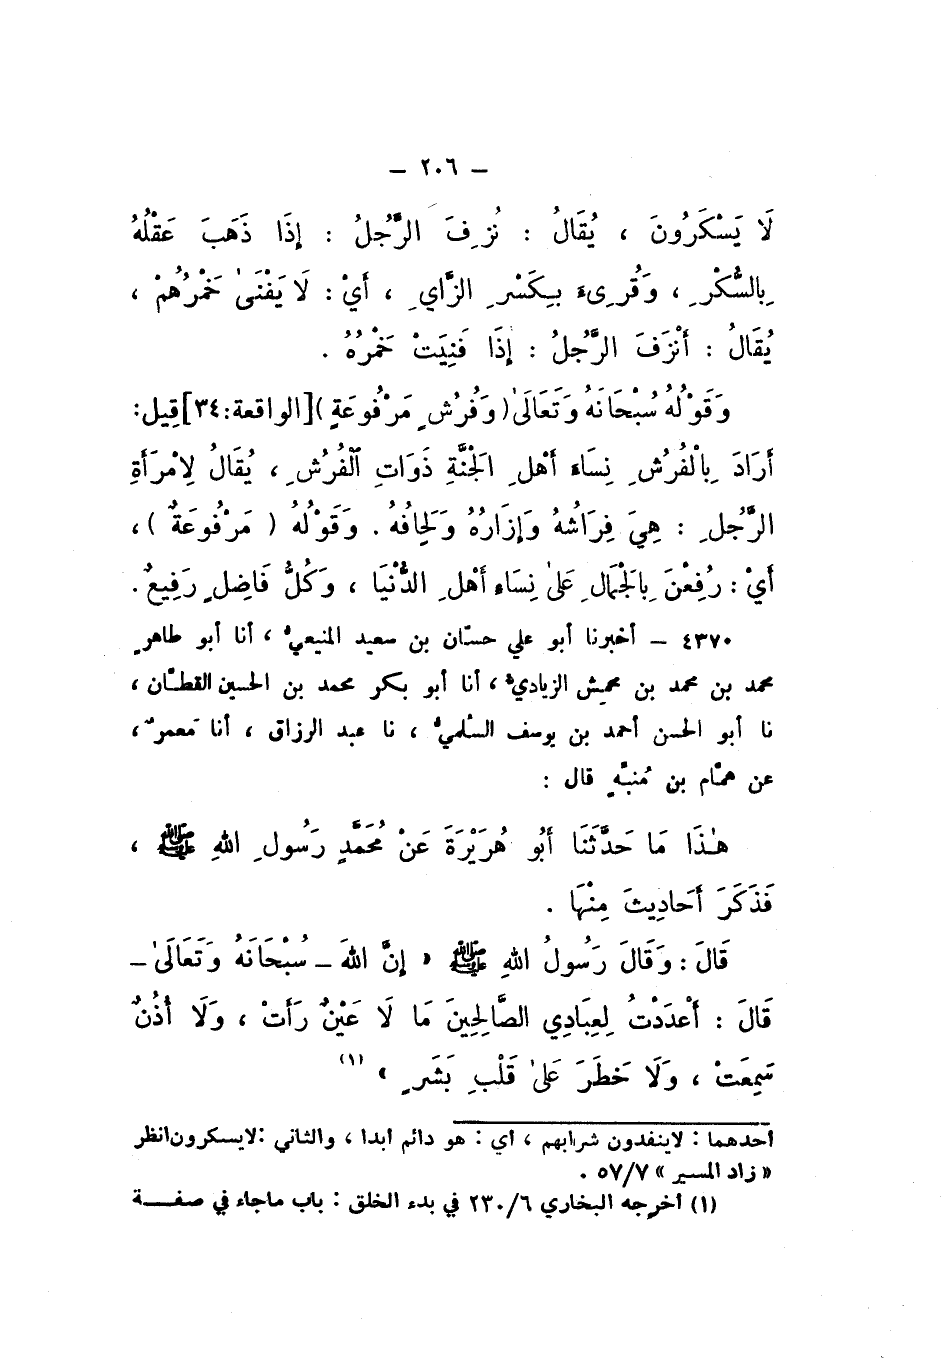 – ٢٠٦ –
لَا يَسْكَرُونَ ، يُقَالُ : نُزِفَ الرَّجُلُ : إِذَا ذَهَبَ عَقْلُهُ
بِالسُّكْرِ ، وَقُرِىءَ بِكَسْرِ الزَّايِ ، أَيْ : لَا يَفْنَىٰ خَمْرُهُمْ ،
يُقَالُ : أَنْزَفَ الرَّجُلُ : إِذَا فَنِيَتْ خَمْرُهُ .
وَقَوْلُهُ سُبْحَانَهُ وَتَعَالَىٰ ( وَفُرُشٍ مَرْفُوعَةٍ ) [الواقعة: ٣٤] قِيلَ:
أَرَادَ بِالْفُرُشِ نِسَاءَ أَهْلِ الجَنَّةِ ذَوَاتِ ٱلْفُرُشِ ، يُقَالُ لِامْرَأَةِ
الرَّجُلِ : هِيَ فِرَاشُهُ وَإِزَارُهُ وَلِحَافُهُ . وَقَوْلُهُ ( مَرْفُوعَةٌ ) ،
أَيْ : رُفِعْنَ بِالجَمَالِ عَلىٰ نِسَاءِ أَهْلِ الدُّنْيَا ، وَكُلُّ فَاضِلٍ رَفِيعٌ .
٤٣٧٠ – أخبرنا أبو علي حسّان بن سعيد المنيعيُّ ، أنا أبو طاهرٍ
محمد بن محمد بن محمِش الزياديُّ ، أنا أبو بكر محمد بن الحسين القطّان ،
نا أبو الحسن أحمد بن يوسف السُّلميُّ ، نا عبد الرزاق ، أنا مَعمرٌ ،
عن همّام بن مُنبّهٍ قال :
هٰذَا مَا حَدَّثَنَا أَبُو هُرَيْرَةَ عَنْ مُحَمَّدٍ رَسُولِ اللهِ ﷺ ،
فَذَكَرَ أَحَادِيثَ مِنْهَا .
قَالَ : وَقَالَ رَسُولُ اللهِ ﷺ « إِنَّ اللهَ – سُبْحَانَهُ وَتَعَالَىٰ –
قَالَ : أَعْدَدْتُ لِعِبَادِي الصَّالِحِينَ مَا لَا عَيْنٌ رَأَتْ ، وَلَا أُذُنٌ
سَمِعَتْ ، وَلَا خَطَرَ عَلىٰ قَلْبِ بَشَرٍ » (١)
أحدهما : لاينفدون شرابهم ، أي : هو دائم أبدا ، والثاني : لايسكرون انظر
« زاد المسير » ٥٧/٧ .
(١) أخرجه البخاري ٢٣٠/٦ في بدء الخلق : باب ماجاء في صفـــة